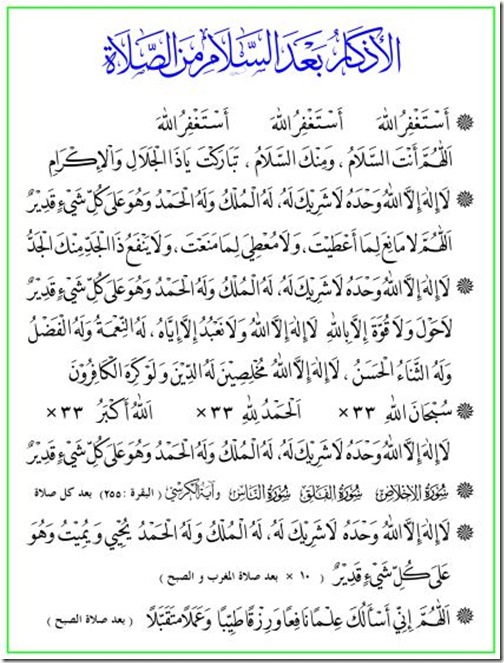 الأذكار بعد السلام من الصلاة
أَسْتَغْفِرُ اللهَ أَسْتَغْفِرُ اللهَ أَسْتَغْفِرُ اللهَ
اللَّهُمَّ أَنْتَ السَّلَامُ ، وَمِنْكَ السَّلَامُ ، تَبَارَكْتَ يَاذَا الْجَلَالِ وَالْإِكْرَامِ
لَا إِلٰهَ إِلَّا اللهُ وَحْدَهُ لَا شَرِيكَ لَهُ، لَهُ الْمُلْكُ وَلَهُ الْحَمْدُ وَهُوَ عَلَى كُلِّ شَيْءٍ قَدِيرٌ
اللَّهُمَّ لَا مَانِعَ لِمَا أَعْطَيْتَ، وَلَا مُعْطِيَ لِمَا مَنَعْتَ، وَلَا يَنْفَعُ ذَا الْجَدِّ مِنْكَ الْجَدُّ
لَا إِلٰهَ إِلَّا اللهُ وَحْدَهُ لَا شَرِيكَ لَهُ، لَهُ الْمُلْكُ وَلَهُ الْحَمْدُ وَهُوَ عَلَى كُلِّ شَيْءٍ قَدِيرٌ
لَا حَوْلَ وَلَا قُوَّةَ إِلَّا بِاللهِ لَا إِلٰهَ إِلَّا اللهُ وَلَا نَعْبُدُ إِلَّا إِيَّاهُ ، لَهُ النِّعْمَةُ وَلَهُ الْفَضْلُ
وَلَهُ الثَّنَاءُ الْحَسَنُ ، لَا إِلٰهَ إِلَّا اللهُ مُخْلِصِينَ لَهُ الدِّينَ وَلَوْ كَرِهَ الْكَافِرُونَ
سُبْحَانَ اللهِ ٣٣ × الْحَمْدُ لِلهِ ٣٣ × اللهُ أَكْبَرُ ٣٣ ×
لَا إِلٰهَ إِلَّا اللهُ وَحْدَهُ لَا شَرِيكَ لَهُ، لَهُ الْمُلْكُ وَلَهُ الْحَمْدُ وَهُوَ عَلَى كُلِّ شَيْءٍ قَدِيرٌ
سُورَةُ الْإِخْلَاصِ سُورَةُ الْفَلَقِ سُورَةُ النَّاسِ وَآيَةُ الْكُرْسِيِّ ( البقرة :٢٥٥ ) بعد كل صلاة
لَا إِلٰهَ إِلَّا اللهُ وَحْدَهُ لَا شَرِيكَ لَهُ ، لَهُ الْمُلْكُ وَلَهُ الْحَمْدُ يُحْيِي وَيُمِيتُ وَهُوَ
عَلَى كُلِّ شَيْءٍ قَدِيرٌ ( ١٠ × بعد صلاة المغرب و الصبح )
اللَّهُمَّ إِنِّي أَسْأَلُكَ عِلْمًا نَافِعًا وَرِزْقًا طَيِّبًا وَعَمَلًا مُتَقَبَّلًا ( بعد صلاة الصبح )